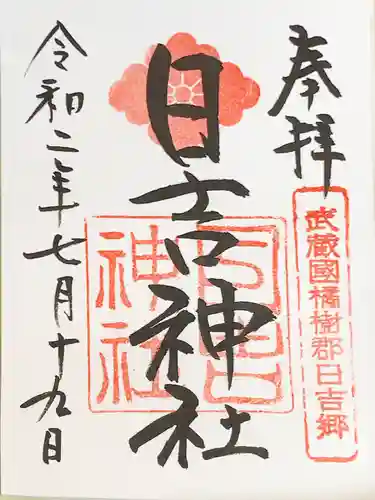 奉拝
武蔵國橘樹郡日吉郷
日吉神社
日吉神社
令和二年七月十九日